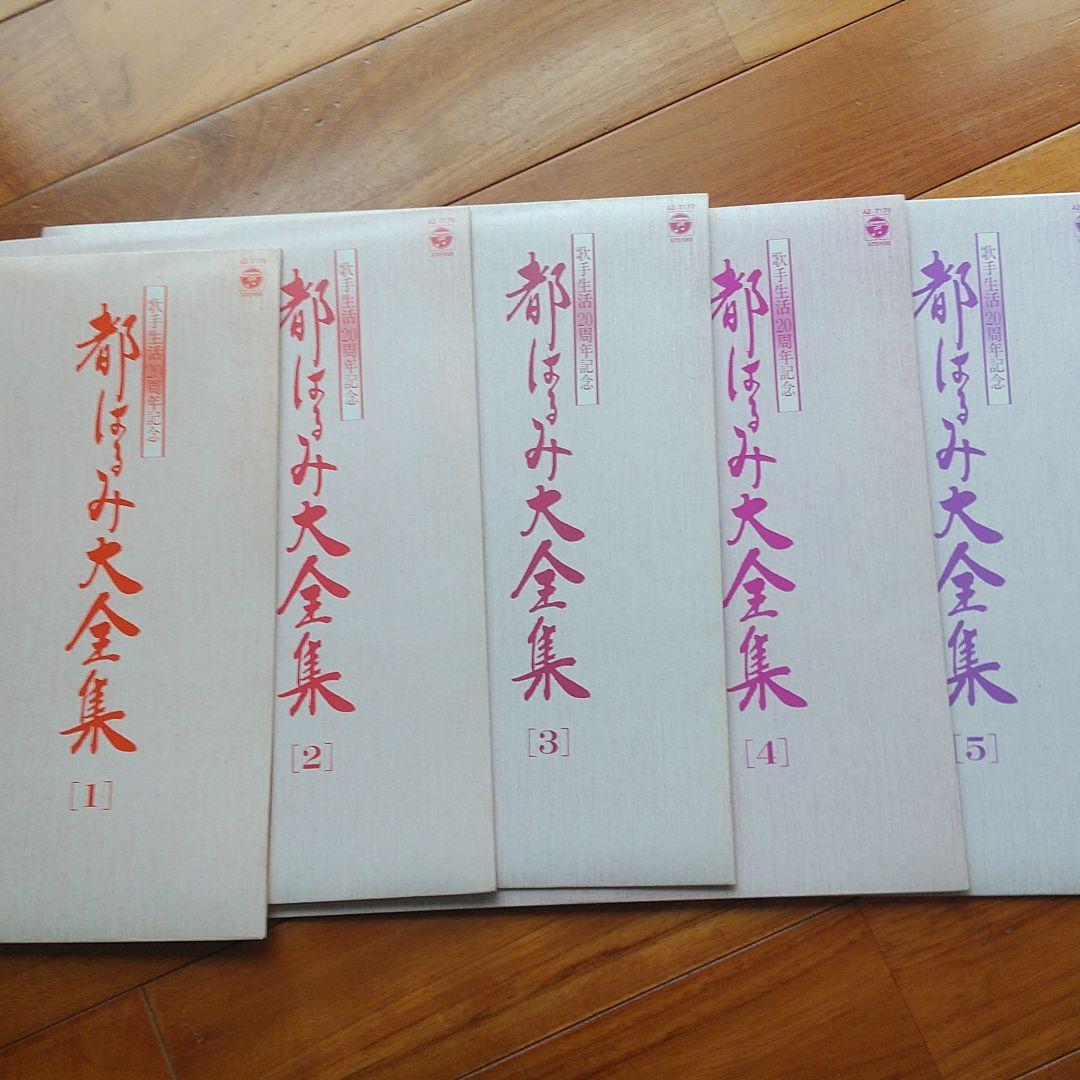 歌手生活20周年記念
都はるみ大全集
[1]
STEREO
歌手生活20周年記念
都はるみ大全集
[2]
AZ-7177
STEREO
歌手生活20周年記念
都はるみ大全集
[3]
STEREO
歌手生活20周年記念
都はるみ大全集
[4]
歌手生活20周年記念
都はるみ大全集
[5]